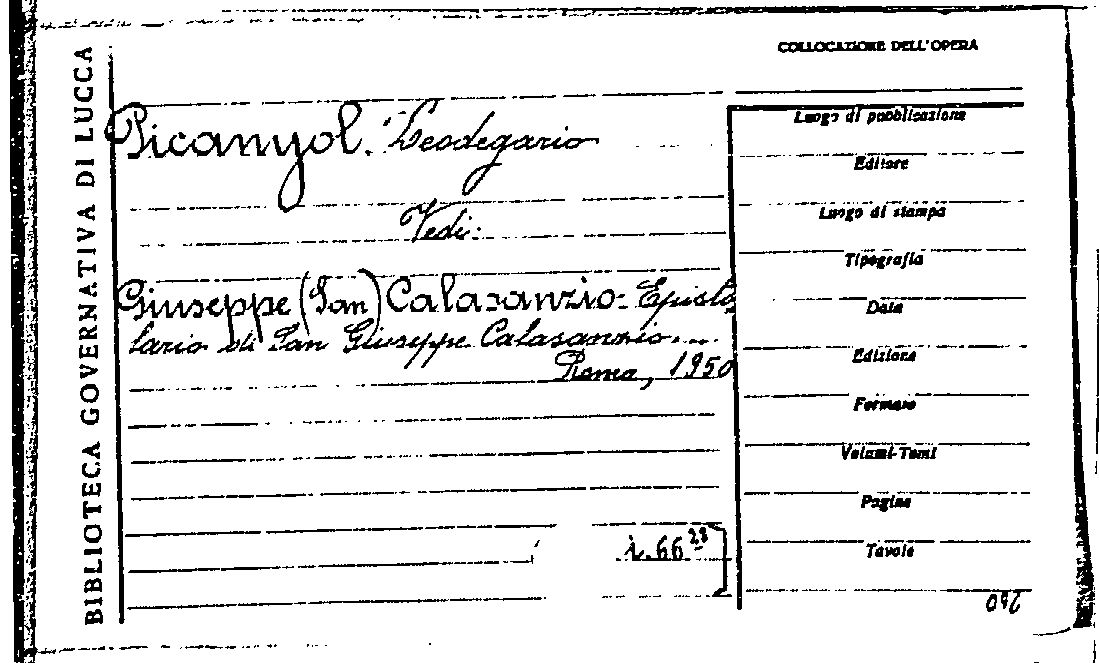 BIBLIOTECA GOVERNATIVA DI LUCCA
COLLOCAZIONE DELL'OPERA
Picanyol. Leodegario
Vedi:
Giuseppe (San) Calasanzio- Episto
lario di San Giuseppe Calasanzio....
Roma, 1950
Luogo di pubblicazione
Editore
Luogo di stampa
Tipografia
Data
Edizione
Formato
Volumi-Tomi
Pagine
Tavole
i. 66 28